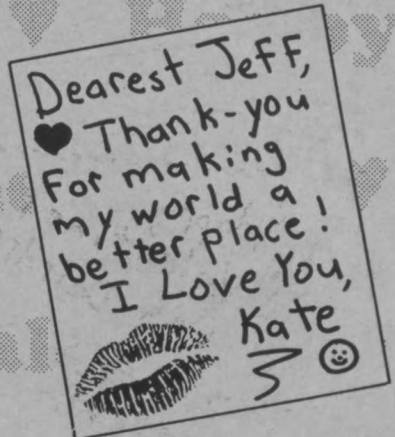 Dearest Jeff,
Thank-you
For making
my world a
better place!
I Love You,
Kate